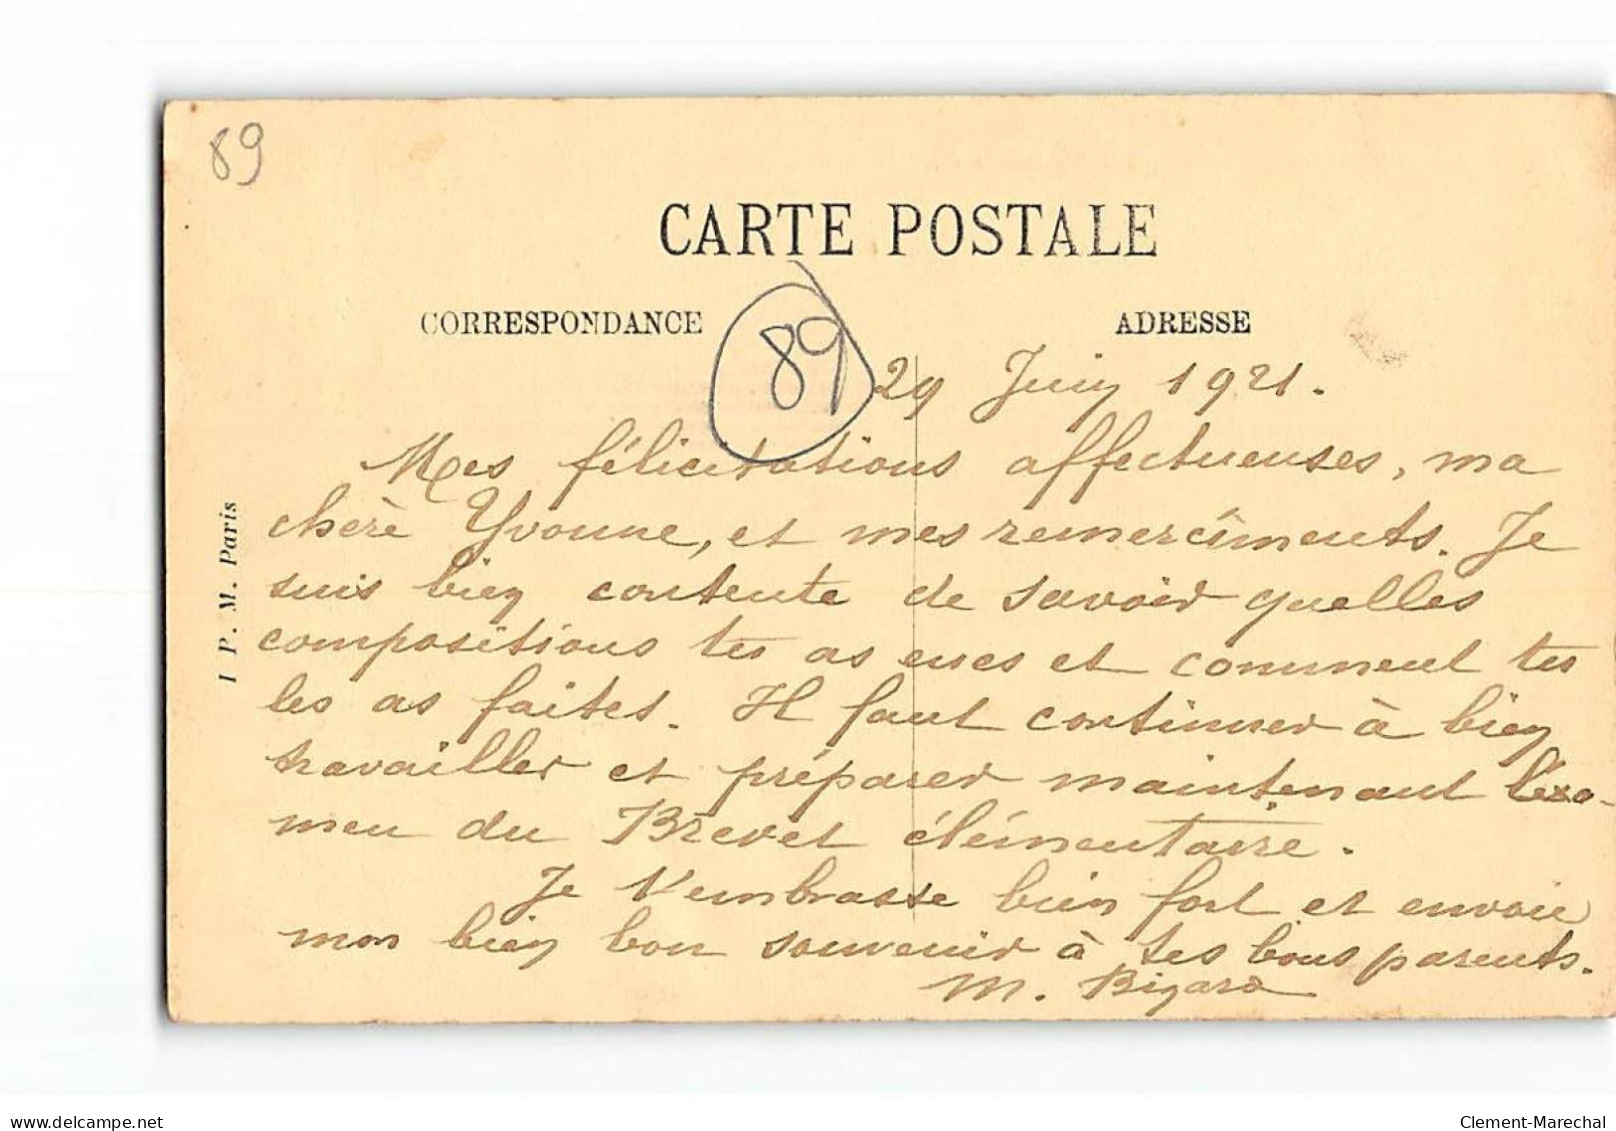 89
CARTE POSTALE
CORRESPONDANCE
ADRESSE
89
29 Juin 1921.
Mes félicitations affectueuses, ma
chère Yvonne, et mes remercîments. Je
suis bien contente de savoir quelles
compositions tu as eues et comment tu
les as faites. Il faut continuer à bien
travailler et préparer maintenant l'exa-
men du Brevet élémentaire.
Je t'embrasse bien fort et envoie
mon bien bon souvenir à tes bons parents.
M. Bigard
I P. M. Paris
www.delcampe.net
Clement-Marechal